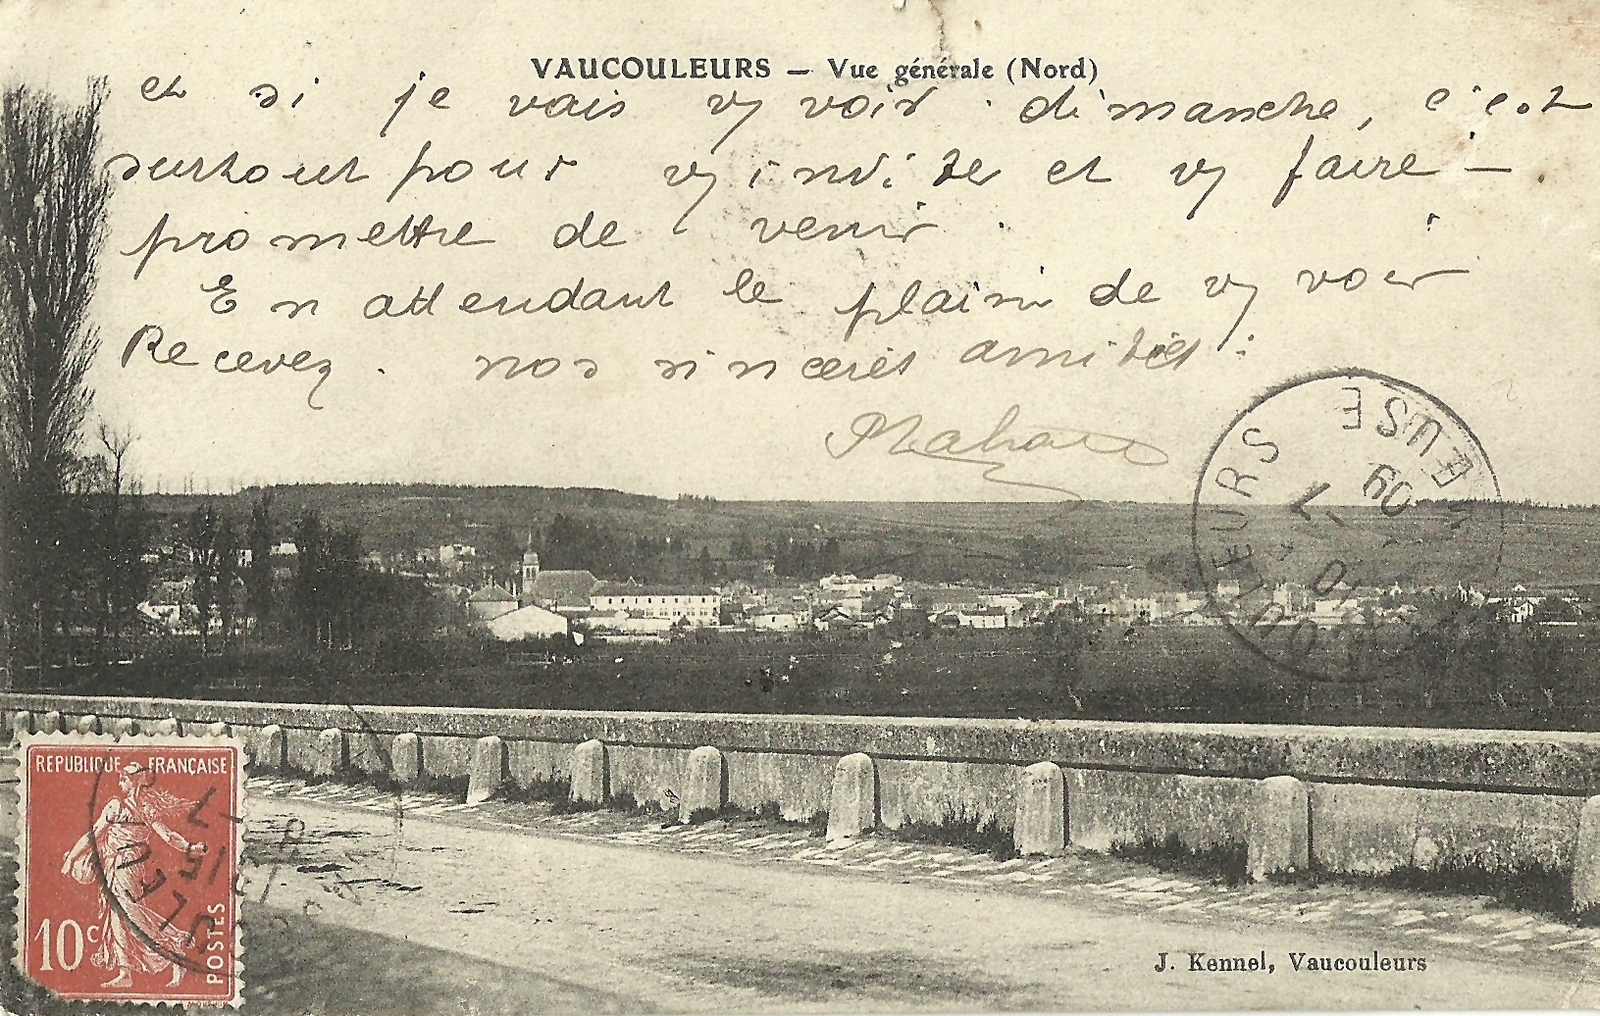 VAUCOULEURS — Vue générale (Nord)
et si je vais vs voir dimanche, c'est
surtout pour vs inviter et vs faire —
promettre de venir.
En attendant le plaisir de vs voir
Recevez. nos sincères amitiés.
VAUCOULEURS
MEUSE
09
REPUBLIQUE FRANÇAISE
10c
POSTES
J. Kennel, Vaucouleurs